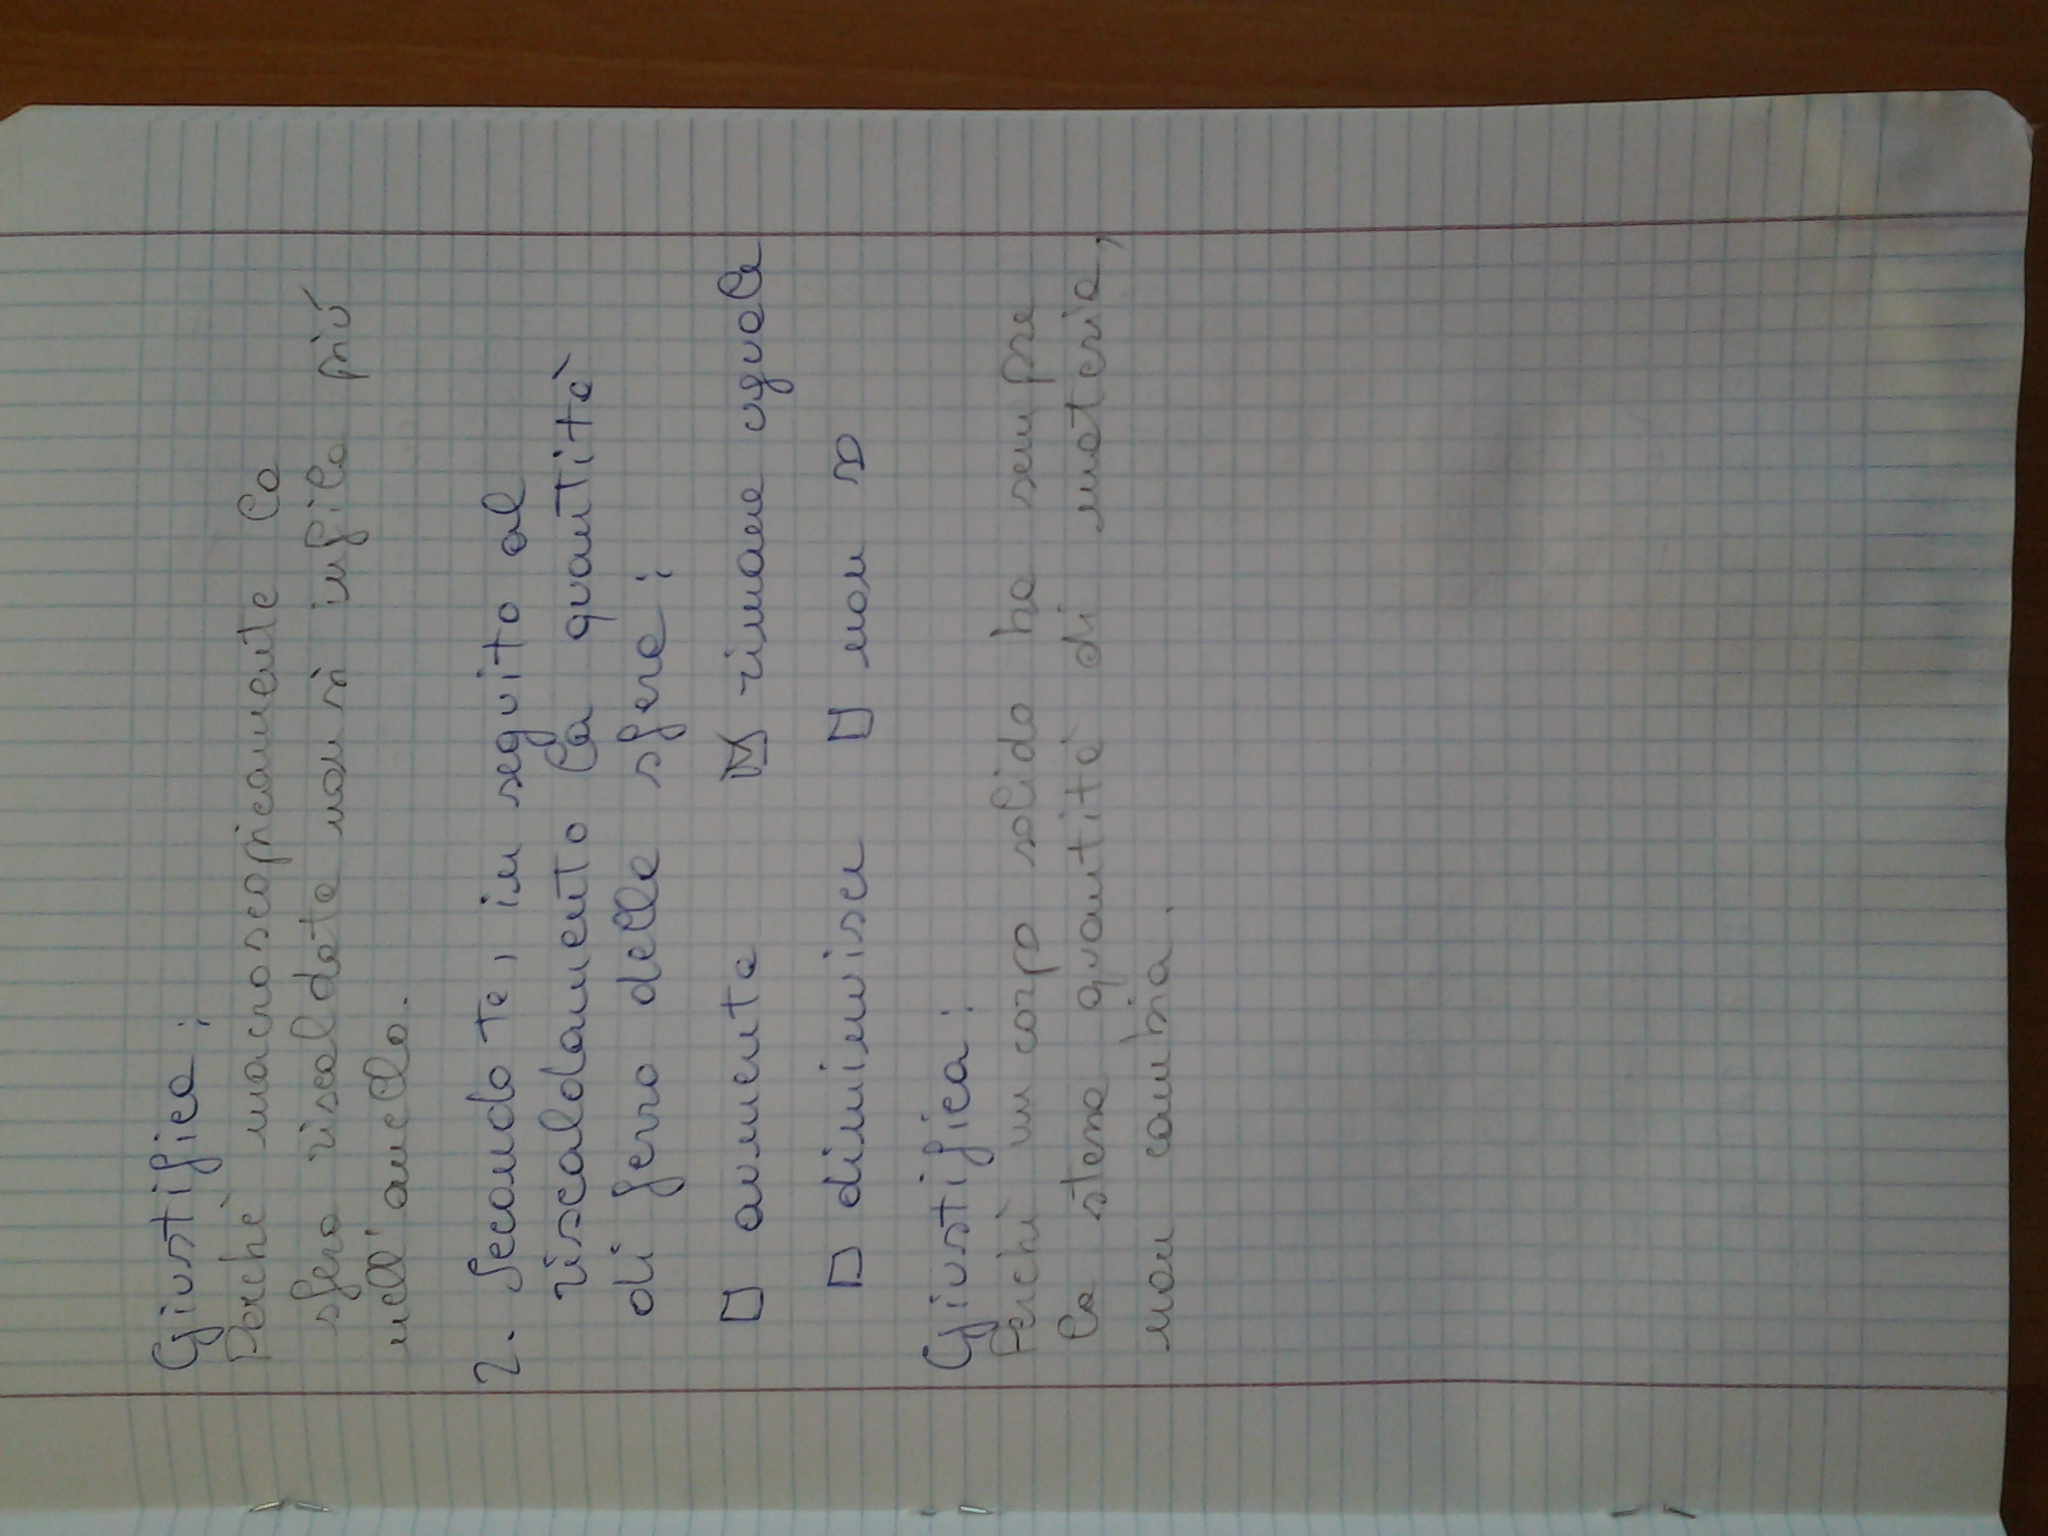 Giustifica:
Perchè macroscopicamente la
sfera riscaldata non si infila più
nell'anello.
2. Secondo te, in seguito al
riscaldamento la quantità
di ferro della sfera:
☐ aumenta ☒ rimane uguale
☐ diminuisce ☐ non so
Giustifica:
Perchè un corpo solido ha sempre
la stessa quantità di materia,
non cambia.